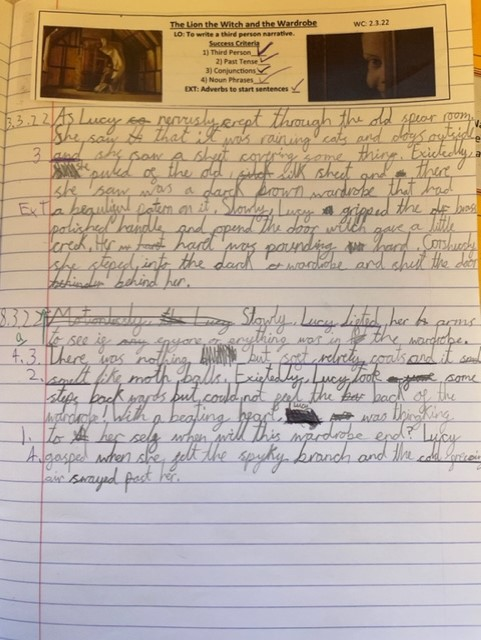 The Lion the Witch and the Wardrobe
WC: 2.3.22
LO: To write a third person narrative.
Success Criteria
1) Third Person
2) Past Tense
3) Conjunctions
4) Noun Phrases
EXT: Adverbs to start sentences
3.3.22 As Lucy nervously crept through the old spear room
She saw that it was raining cats and dogs outside
3 and she saw a sheet covering some thing. Exietedly,
she puled of the old, silk sheet and there
she saw was a darck brown wardrobe that had
Ext a beautiful patern on it. Slowly, Lucy gripped the brass
polished handle and opend the door witch gave a little
creck. Her hard was pounding hard.
she steped into the dark wardrobe and shut the door
behind her.
8.3.22 Slowly, Lucy listed her arms
to see if anyone or anything was in the wardrobe.
4.3. There was nothing but soft velvety coats and it
2. smelt like moth balls. Exietedly, Lucy took some
steps back wards but could not feel the back of the
wardrobe! With a beating heart, Lucy was thingking
1. to her self when will this wardrobe end? Lucy
4. gasped when she felt the spyky branch and the cold
air swayed past her.